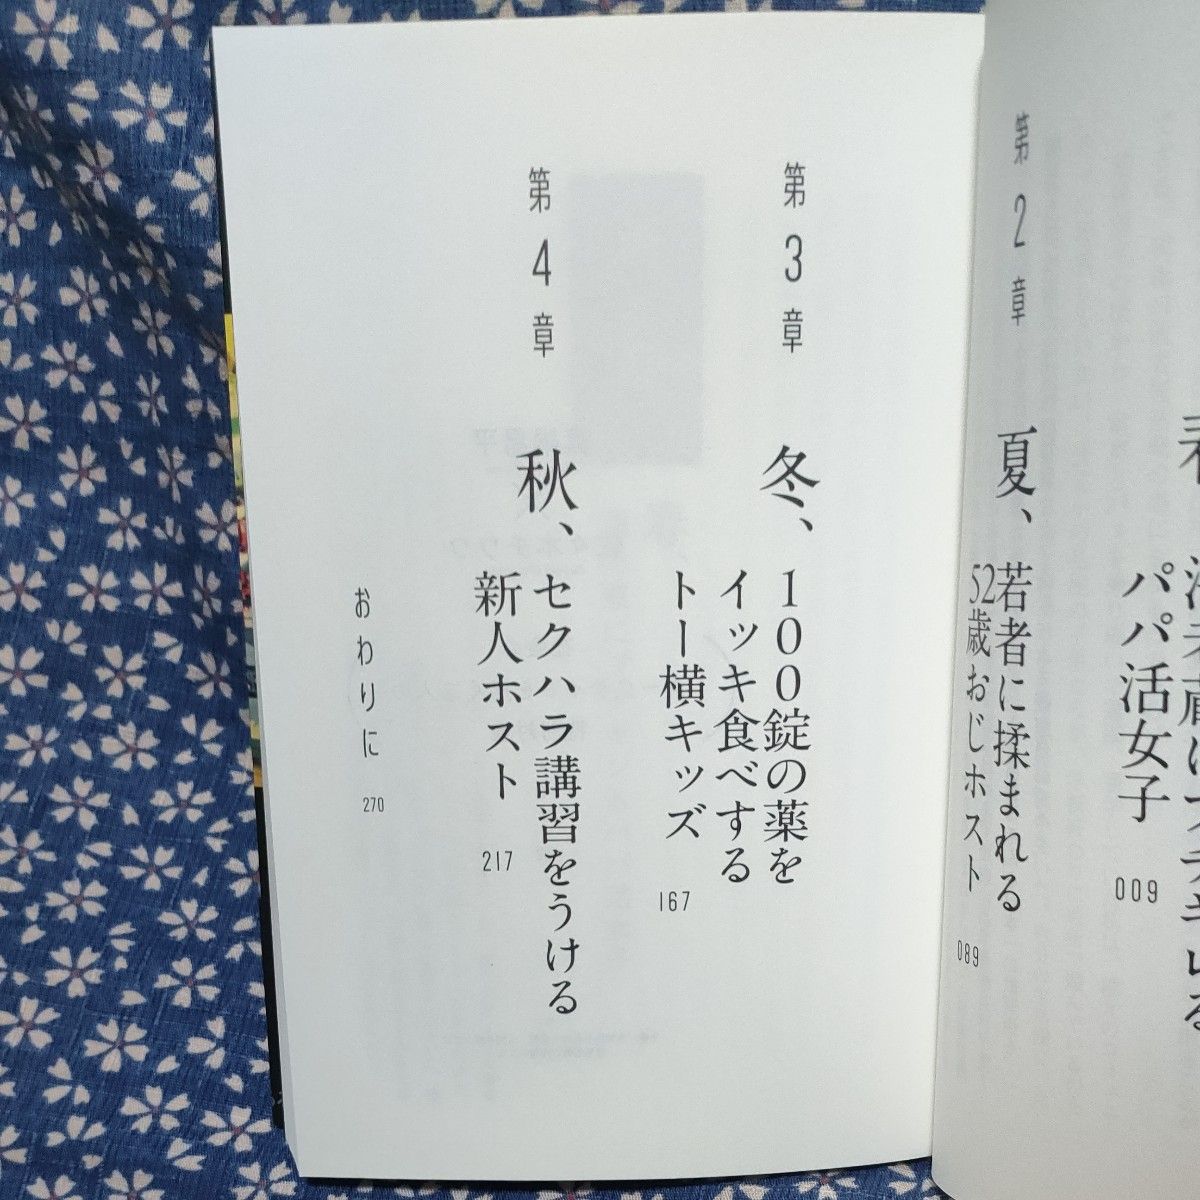 パパ活女子
009
第2章
夏、
若者に揉まれる
52歳おじホスト
089
第3章
冬、
100錠の薬を
イッキ食べする
トー横キッズ
167
第4章
秋、
セクハラ講習をうける
新人ホスト
217
おわりに
270